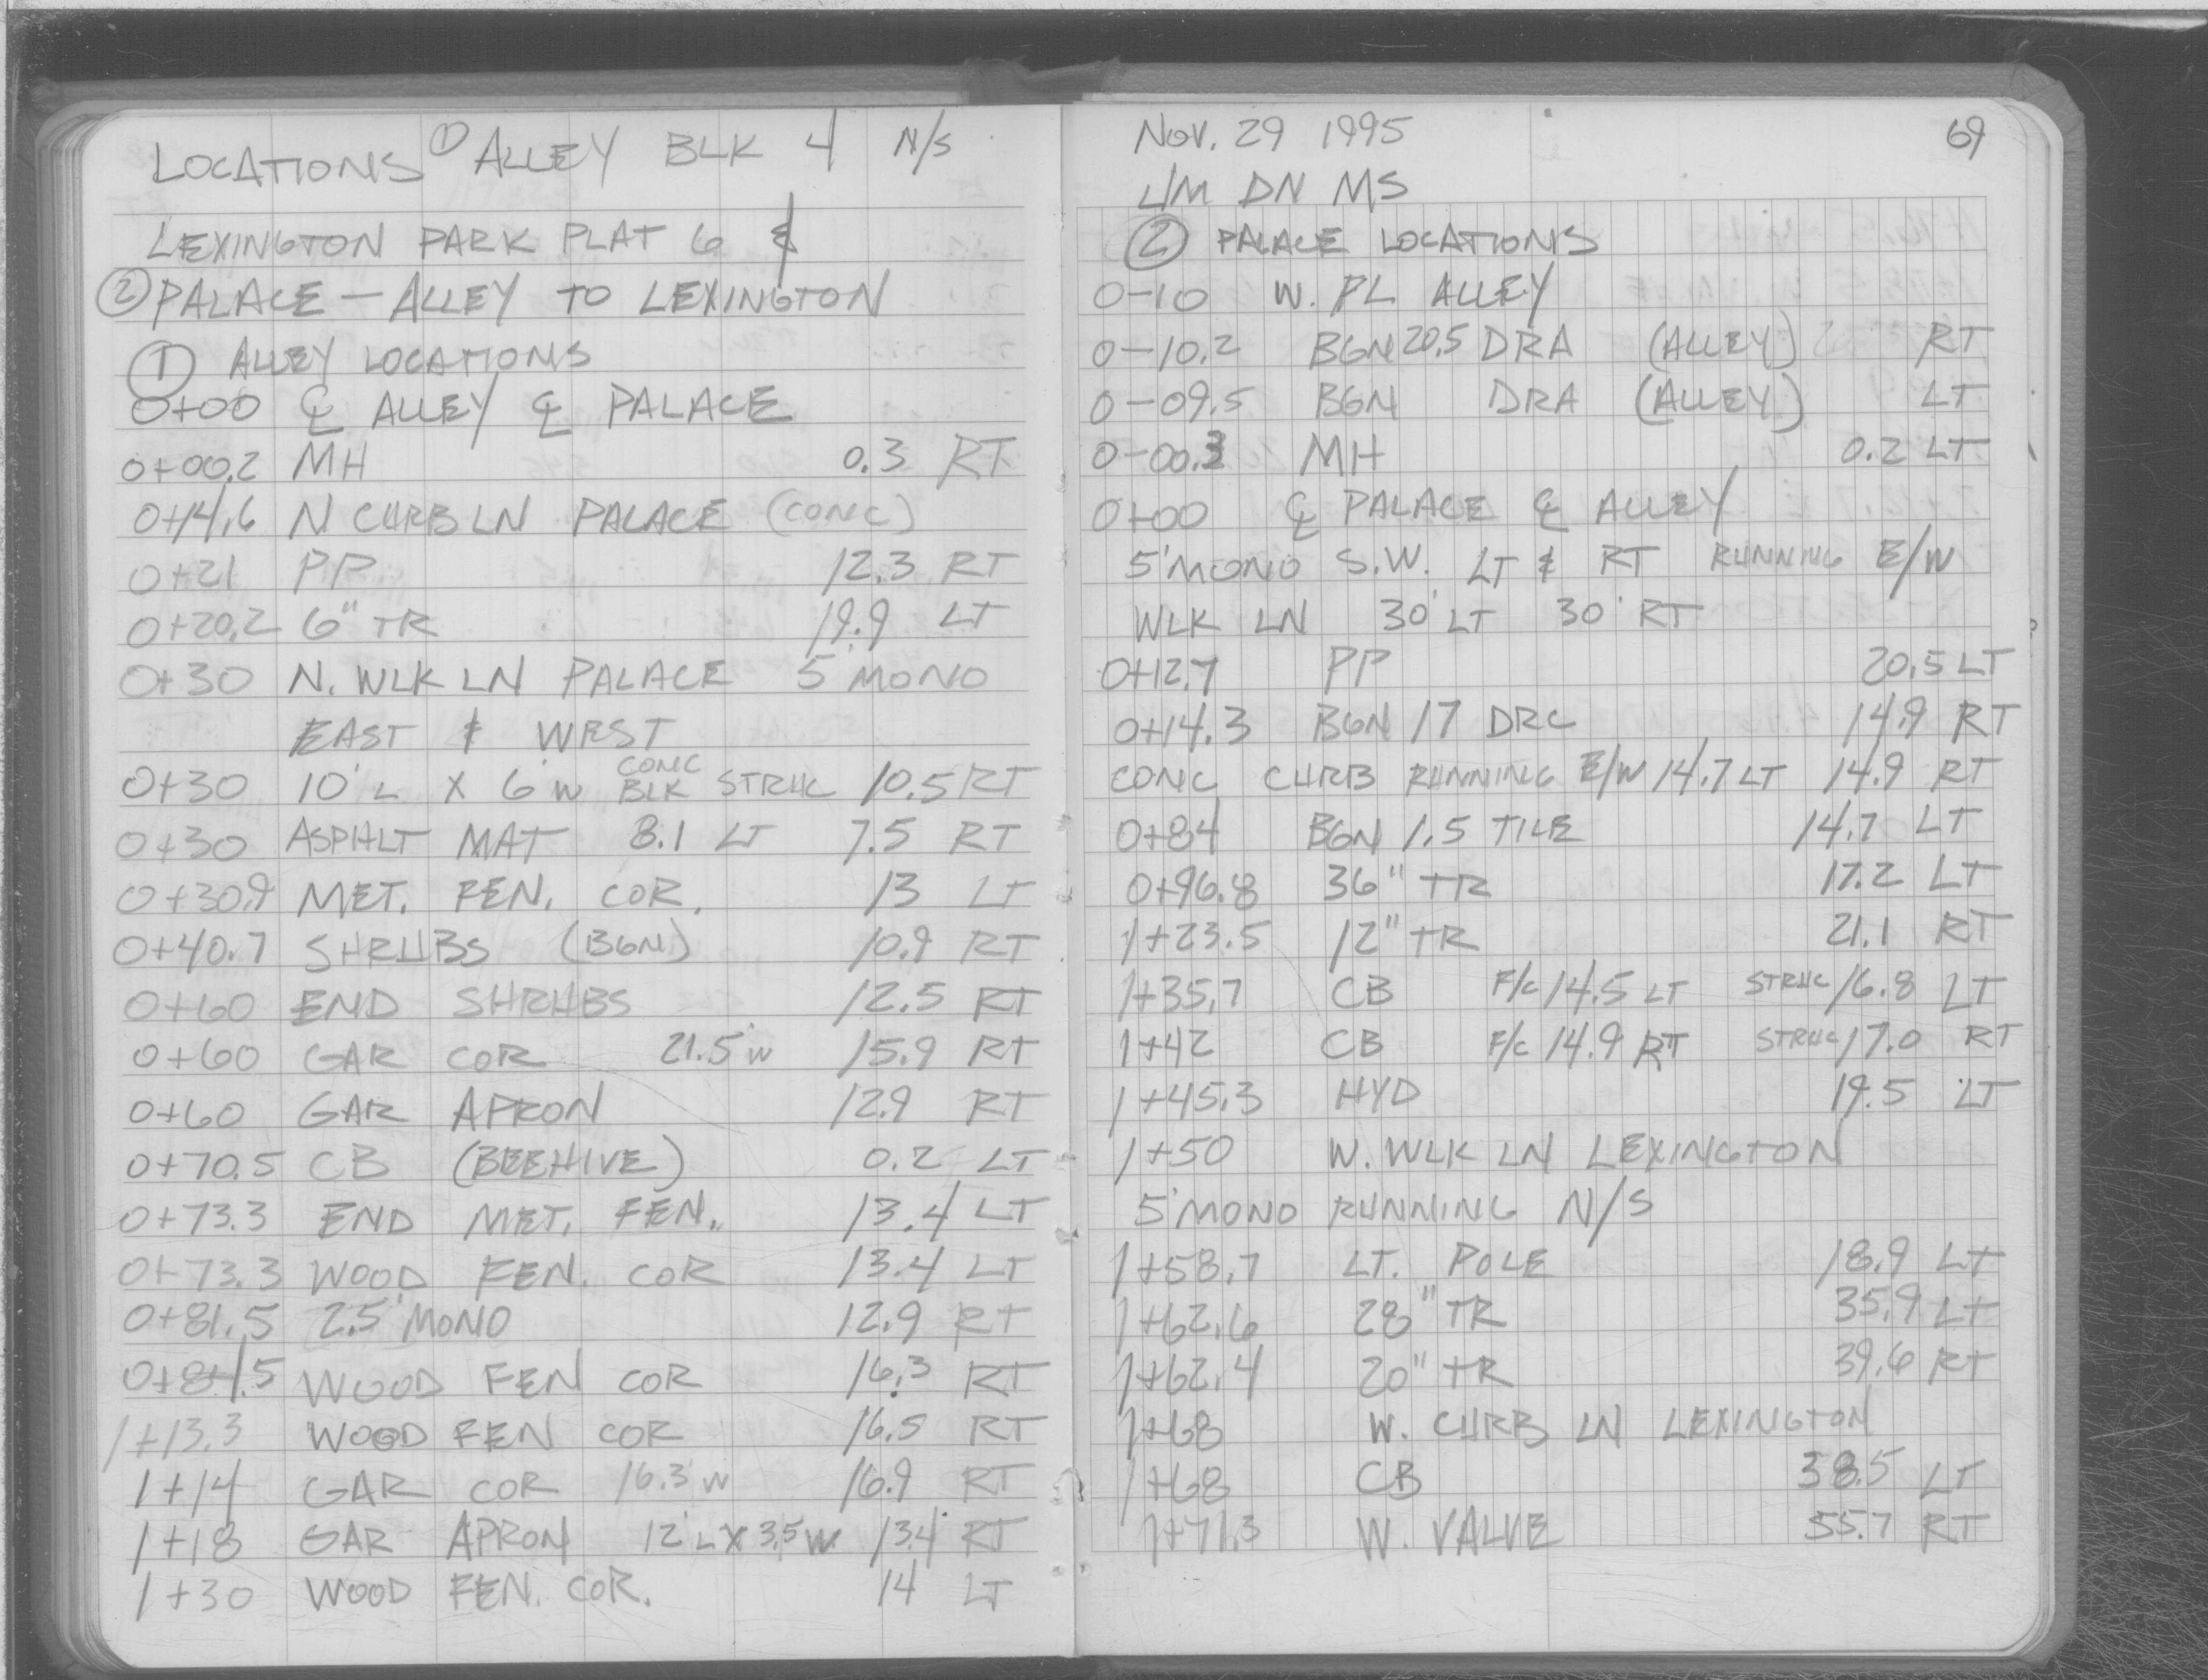 LOCATIONS ① ALLEY BLK 4 N/S
LEXINGTON PARK PLAT 6 &
② PALACE — ALLEY TO LEXINGTON
① ALLEY LOCATIONS
0+00 ℄ ALLEY ℄ PALACE
0+00.2 MH 0.3 RT
0+14.6 N CURB LN PALACE (CONC)
0+21 PP 12.3 RT
0+20.2 6" TR 19.9 LT
0+30 N. WLK LN PALACE 5' MONO
EAST & WEST
0+30 10' L X 6' W CONC BLK STRUC 10.5 RT
0+30 ASPHLT MAT 8.1 LT 7.5 RT
0+30.9 MET. FEN. COR. 13 LT
0+40.7 SHRUBS (BGN) 10.9 RT
0+60 END SHRUBS 12.5 RT
0+60 GAR COR 21.5' W 15.9 RT
0+60 GAR APRON 12.9 RT
0+70.5 CB (BEEHIVE) 0.2 LT
0+73.3 END MET. FEN. 13.4 LT
0+73.3 WOOD FEN. COR 13.4 LT
0+81.5 2.5' MONO 12.9 RT
0+84.5 WOOD FEN COR 16.3 RT
1+13.3 WOOD FEN COR 16.5 RT
1+14 GAR COR 16.3' W 16.9 RT
1+18 GAR APRON 12' L X 3.5' W 13.4 RT
1+30 WOOD FEN. COR. 14 LT
NOV. 29 1995 69
L/M DN MS
② PALACE LOCATIONS
0-10 W. PL ALLEY
0-10.2 BGN 20.5 DRA (ALLEY) RT
0-09.5 BGN DRA (ALLEY) LT
0-00.3 MH 0.2 LT
0+00 ℄ PALACE ℄ ALLEY
5' MONO S.W. LT & RT RUNNING E/W
WLK LN 30' LT 30' RT
0+12.7 PP 20.5 LT
0+14.3 BGN 17 DRC 14.9 RT
CONC CURB RUNNING E/W 14.7 LT 14.9 RT
0+84 BGN 1.5 TILE 14.7 LT
0+96.8 36" TR 17.2 LT
1+23.5 12" TR 21.1 RT
1+35.7 CB F/C 14.5 LT STRUC 16.8 LT
1+42 CB F/C 14.9 RT STRUC 17.0 RT
1+45.3 HYD 19.5 LT
1+50 W. WLK LN LEXINGTON
5' MONO RUNNING N/S
1+58.7 LT. POLE 18.9 LT
1+62.6 28" TR 35.9 LT
1+62.4 20" TR 39.6 RT
1+68 W. CURB LN LEXINGTON
1+68 CB 38.5 LT
1+71.3 W. VALVE 55.7 RT